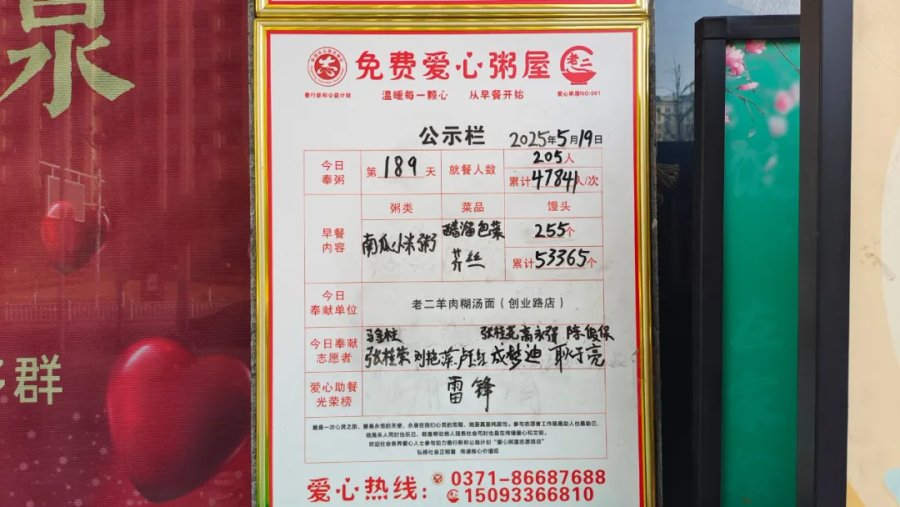 泉
群
免费爱心粥屋
老二
善行新郑公益计划
温暖每一颗心 从早餐开始
爱心粥屋NO:001
公示栏 2025年5月19日
今日奉粥 第189天 就餐人数 205人
累计47841人/次
早餐内容 粥类 菜品 馒头
南瓜小米粥 醋溜包菜 255个
芥丝 累计53365个
今日奉献单位 老二羊肉糊汤面（创业路店）
今日奉献志愿者 张桂英 高永强 陈俊保
张桂荣 刘艳萍 成梦迪
爱心助餐光荣榜 雷锋
弘扬社会正能量 传递核心价值观
爱心热线：0371-86687688
15093366810